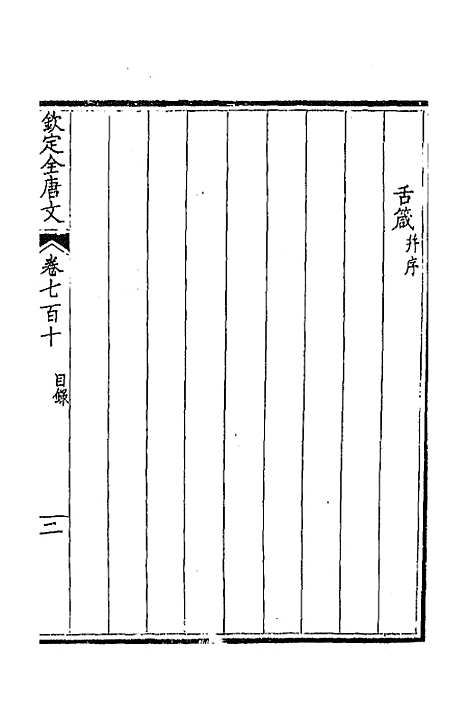 舌箴并序
欽定全唐文
卷七百十
目錄
二